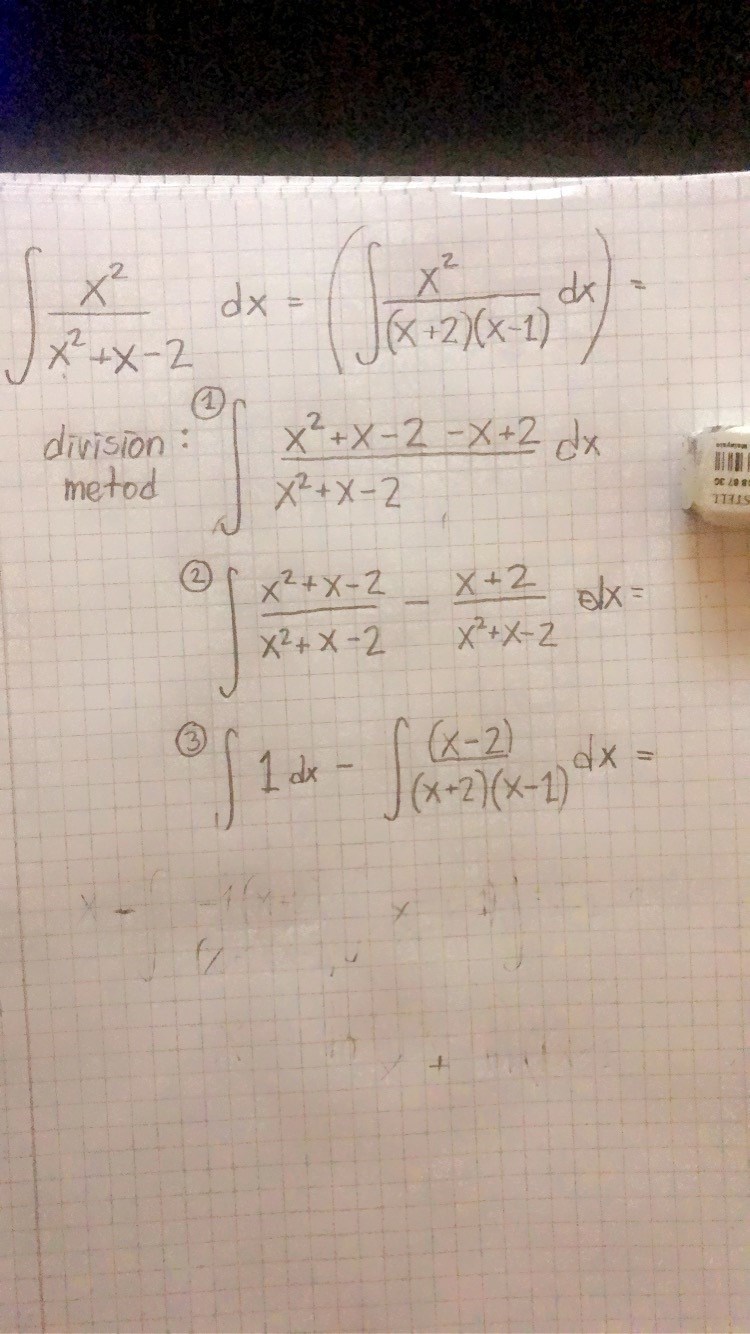 ∫ x²/(x²+x-2) dx = (∫ x²/((x+2)(x-1)) dx) =
division: ① ∫ (x²+x-2-x+2)/(x²+x-2) dx
metod
② ∫ (x²+x-2)/(x²+x-2) - (x+2)/(x²+x-2) dx =
③ ∫ 1 dx - ∫ (x-2)/((x+2)(x-1)) dx =